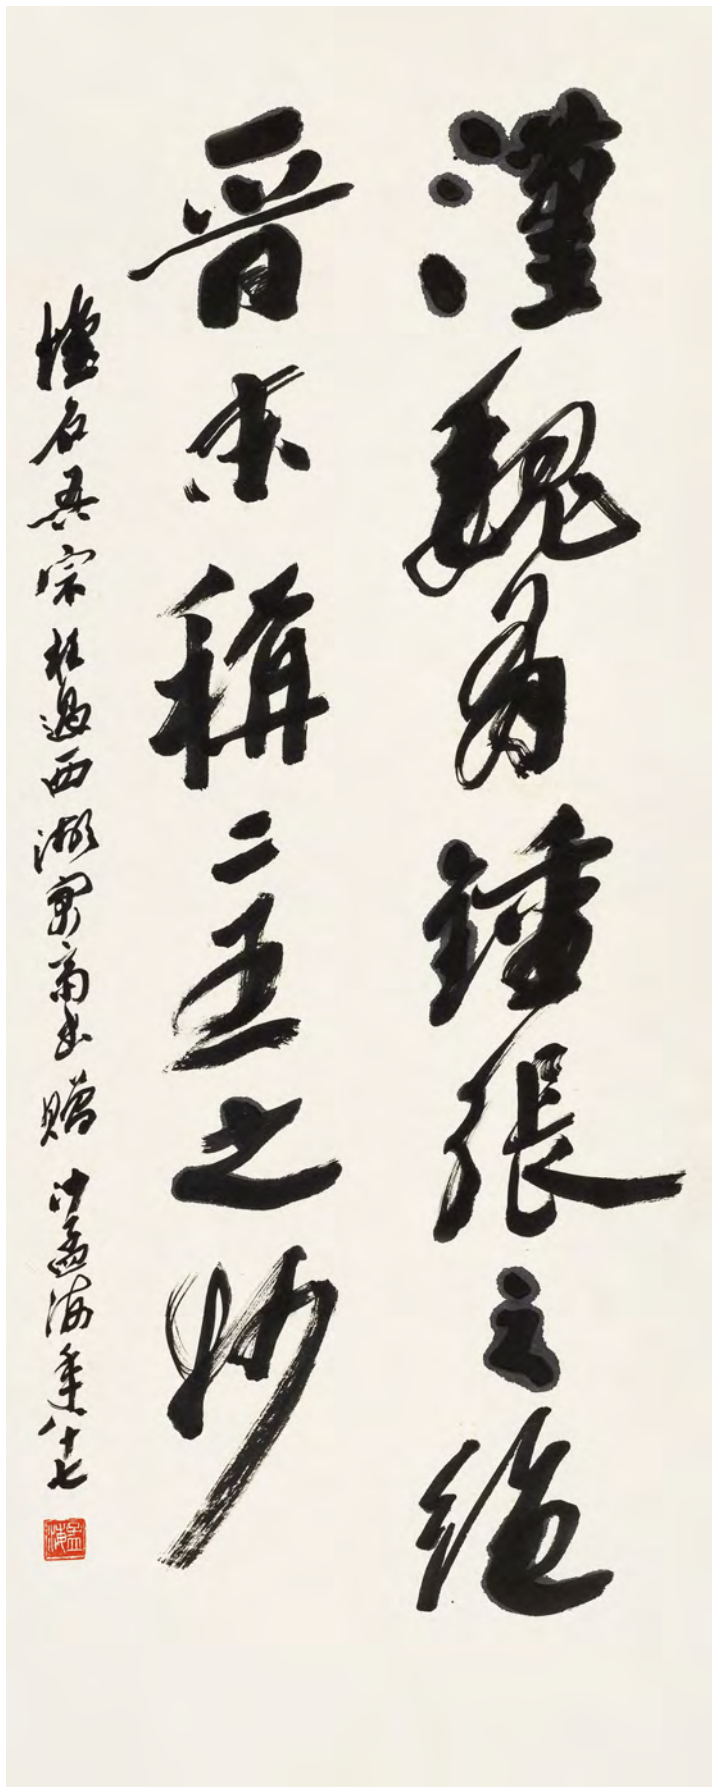 漢魏有鍾張之絕
晉末稱二王之妙
宗枉過西湖寓齋出贈 沙孟海年八十七
孟海